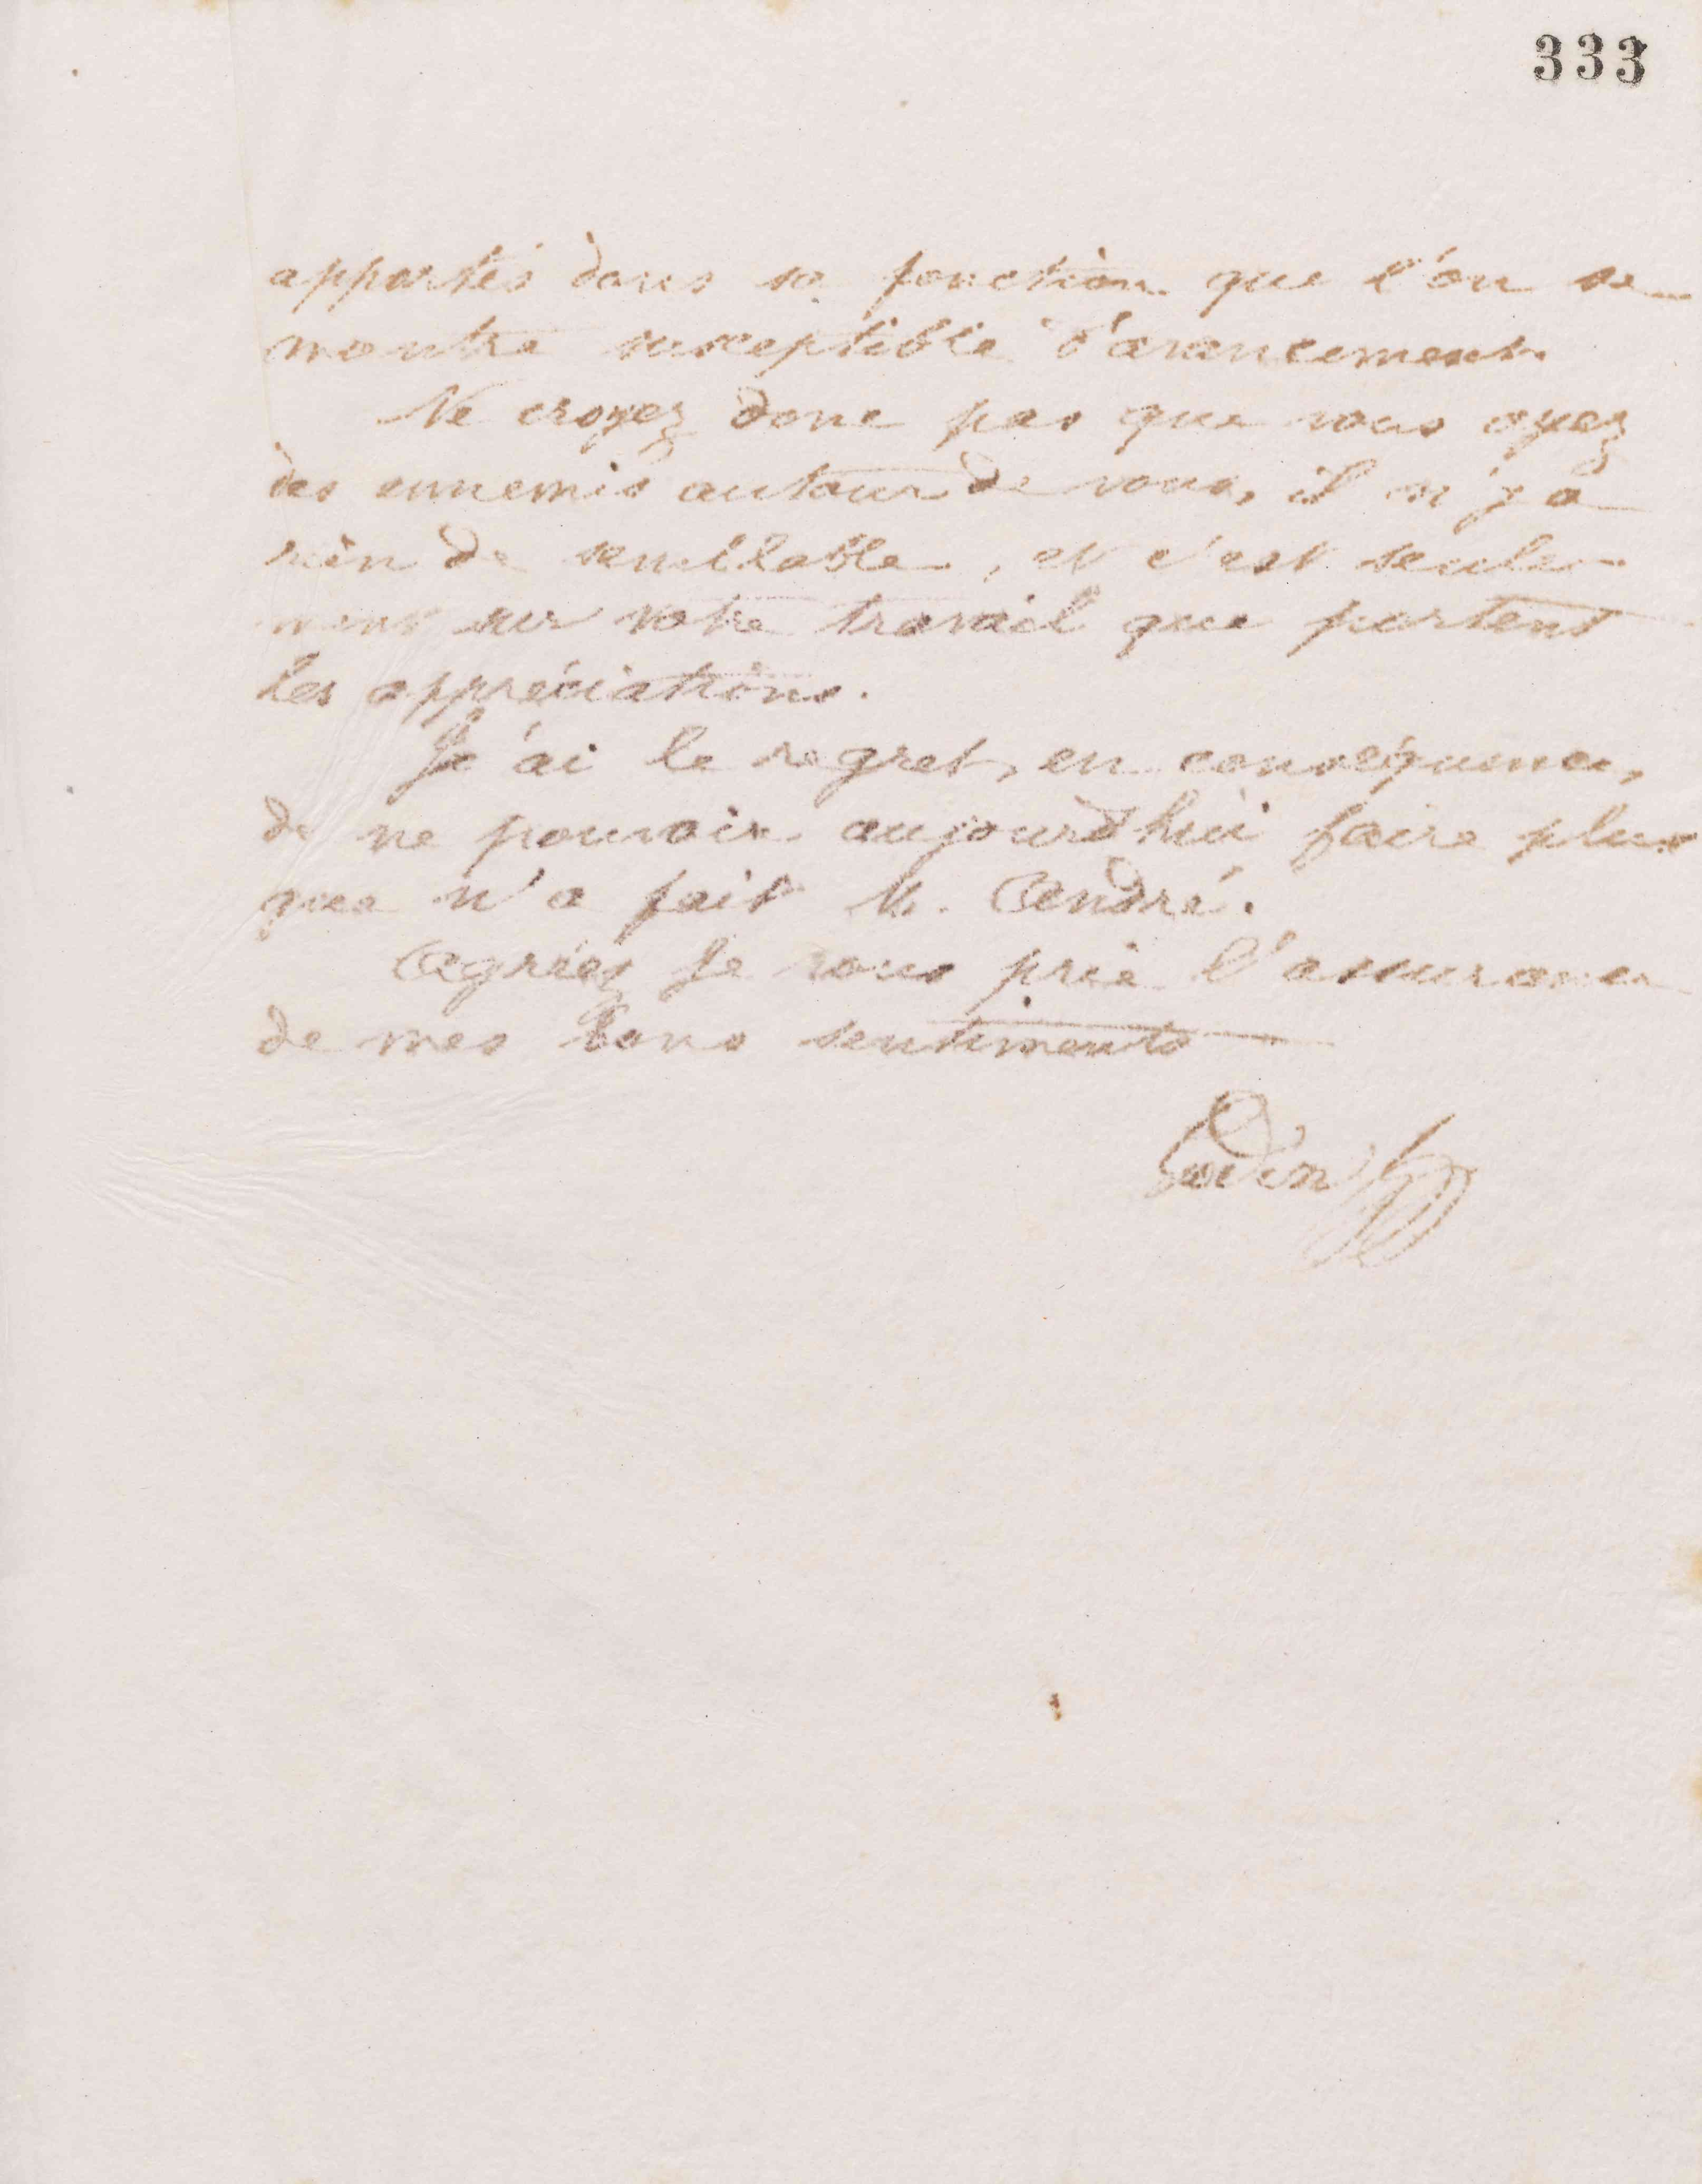 333
apportés dans sa fonction que l'on se
montre susceptible d'avancement.
Ne croyez donc pas que vous ayez
des ennemis autour de vous, il n'y a
rien de semblable, et c'est seule-
ment sur votre travail que portent
les appréciations.
J'ai le regret, en conséquence,
de ne pouvoir aujourd'hui faire plus
que n'a fait M. André.
Agréez je vous prie l'assurance
de mes bons sentiments
Godin